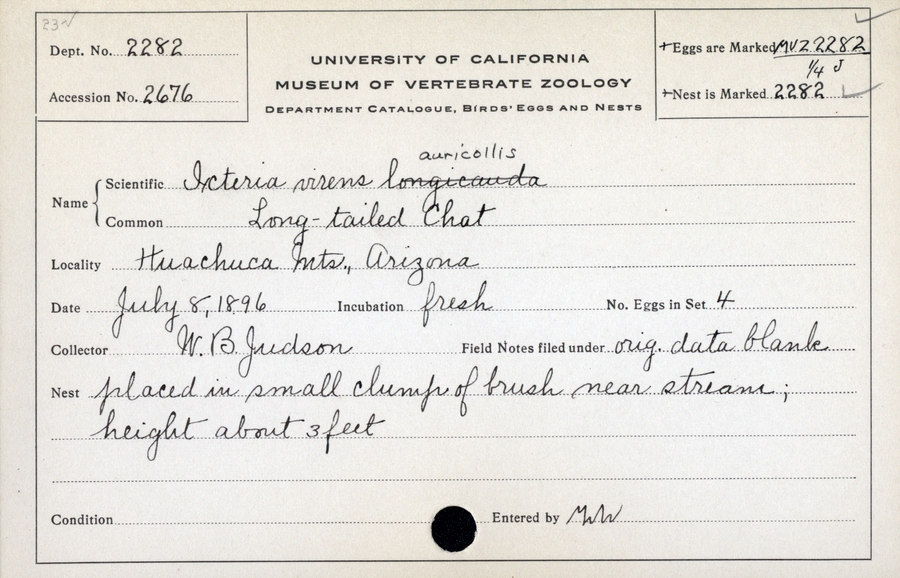 Dept. No. 2282
Accession No. 2676
UNIVERSITY OF CALIFORNIA
MUSEUM OF VERTEBRATE ZOOLOGY
DEPARTMENT CATALOGUE, BIRDS' EGGS AND NESTS
+Eggs are Marked MVZ 2282
1/4
+Nest is Marked 2282
auricollis
Name { Scientific Icteria virens longicauda
Common Long-tailed Chat
Locality Huachuca Mts., Arizona
Date July 8, 1896 Incubation fresh No. Eggs in Set 4
Collector W. B. Judson Field Notes filed under orig. data blank
Nest placed in small clump of brush near stream;
height about 3 feet
Condition Entered by